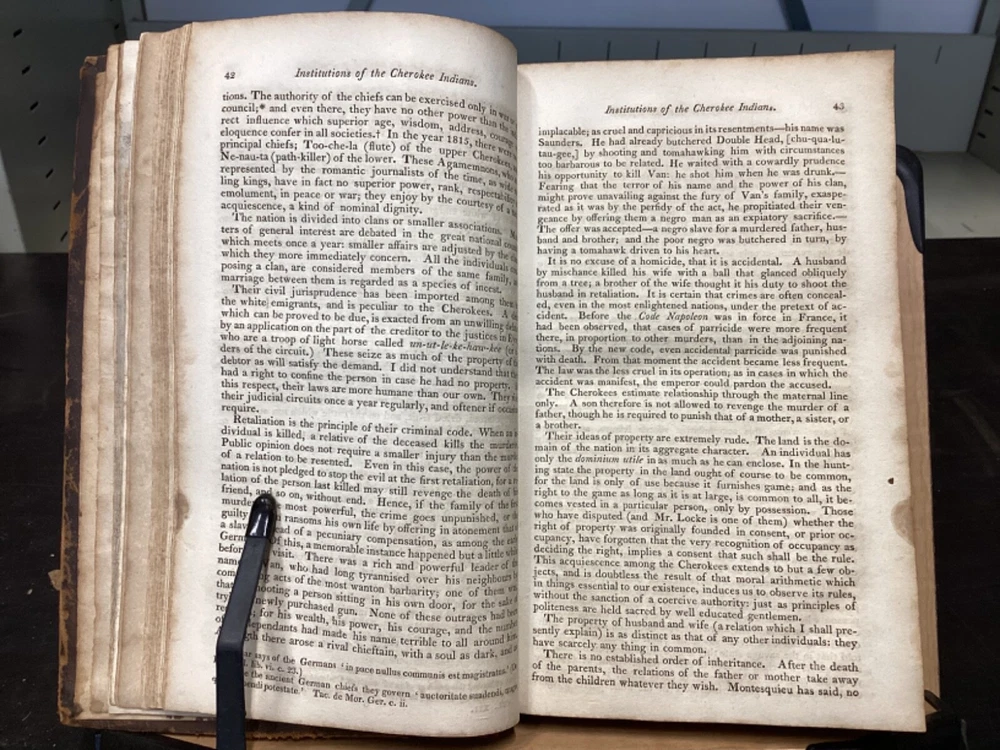 42 Institutions of the Cherokee Indians.
tions. The authority of the chiefs can be exercised only in
council;* and even there, they have no other power than the
rect influence which superior age, wisdom, address,
eloquence confer in all societies.† In the year 1815, there
principal chiefs; Too-che-la (flute) of the upper
Ne-nau-ta (path-killer) of the lower. These Agamemnons,
represented by the romantic journalists of the time, as
ling kings, have in fact no superior power, rank,
emolument, in peace or war; they enjoy by the courtesy of
acquiescence, a kind of nominal dignity.
The nation is divided into clans or smaller associations.
ters of general interest are debated in the great national
which meets once a year: smaller affairs are adjusted by the
which they more immediately concern. All the individuals
posing a clan, are considered members of the same family,
marriage between them is regarded as a species of incest.
Their civil jurisprudence has been imported among
the white emigrants, and is peculiar to the Cherokees. A
which can be proved to be due, is exacted from an unwilling
by an application on the part of the creditor to the justices in
who are a troop of light horse called un-ut-le-ke-haw-kee
ders of the circuit.) These seize as much of the property of
debtor as will satisfy the demand. I did not understand
had a right to confine the person in case he had no property.
this respect, their laws are more humane than our own. They
their judicial circuits once a year regularly, and oftener if
require.
Retaliation is the principle of their criminal code. When
dividual is killed, a relative of the deceased kills the
Public opinion does not require a smaller injury than the
of a relation to be resented. Even in this case, the power of
nation is not pledged to stop the evil at the first retaliation, for a
lation of the person last killed may still revenge the death of
friend, and so on, without end. Hence, if the family of the
most powerful, the crime goes unpunished, or
guilty ransoms his own life by offering in atonement
a slave of a pecuniary compensation, as among the
of this, a memorable instance happened but a little
visit. There was a rich and powerful leader of
who had long tyrannised over his neighbours
acts of the most wanton barbarity; one of them
shooting a person sitting in his own door, for the
newly purchased gun. None of these outrages had
for his wealth, his power, his courage, and the
dependants had made his name terrible to all around
there arose a rival chieftain, with a soul as dark, and
says of the Germans ‘in pace nullus communis est magistratus.’
lib. vi. c. 23.)
the ancient German chiefs they govern ‘auctoritate suadendi,
potestate.’ Tac. de Mor. Ger. c. ii.
Institutions of the Cherokee Indians. 43
implacable; as cruel and capricious in its resentments—his name was
Saunders. He had already butchered Double Head, [chu-qua-lu-
tau-gee,] by shooting and tomahawking him with circumstances
too barbarous to be related. He waited with a cowardly prudence
his opportunity to kill Van: he shot him when he was drunk.—
Fearing that the terror of his name and the power of his clan,
might prove unavailing against the fury of Van's family, exaspe-
rated as it was by the perfidy of the act, he propitiated their ven-
geance by offering them a negro man as an expiatory sacrifice.—
The offer was accepted—a negro slave for a murdered father, hus-
band and brother; and the poor negro was butchered in turn, by
having a tomahawk driven to his heart.
It is no excuse of a homicide, that it is accidental. A husband
by mischance killed his wife with a ball that glanced obliquely
from a tree; a brother of the wife thought it his duty to shoot the
husband in retaliation. It is certain that crimes are often conceal-
ed, even in the most enlightened nations, under the pretext of ac-
cident. Before the Code Napoleon was in force in France, it
had been observed, that cases of parricide were more frequent
there, in proportion to other murders, than in the adjoining na-
tions. By the new code, even accidental parricide was punished
with death. From that moment the accident became less frequent.
The law was the less cruel in its operation; as in cases in which the
accident was manifest, the emperor could pardon the accused.
The Cherokees estimate relationship through the maternal line
only. A son therefore is not allowed to revenge the murder of a
father, though he is required to punish that of a mother, a sister, or
a brother.
Their ideas of property are extremely rude. The land is the do-
main of the nation in its aggregate character. An individual has
only the dominium utile in as much as he can enclose. In the hunt-
ing state the property in the land ought of course to be common,
for the land is only of use because it furnishes game; and as the
right to the game as long as it is at large, is common to all, it be-
comes vested in a particular person, only by possession. Those
who have disputed (and Mr. Locke is one of them) whether the
right of property was originally founded in consent, or prior oc-
cupancy, have forgotten that the very recognition of occupancy as
deciding the right, implies a consent that such shall be the rule.
This acquiescence among the Cherokees extends to but a few ob-
jects, and is doubtless the result of that moral arithmetic which
in things essential to our existence, induces us to observe its rules,
without the sanction of a coercive authority: just as principles of
politeness are held sacred by well educated gentlemen.
The property of husband and wife (a relation which I shall pre-
sently explain) is as distinct as that of any other individuals: they
have scarcely any thing in common.
There is no established order of inheritance. After the death
of the parents, the relations of the father or mother take away
from the children whatever they wish. Montesquieu has said, no